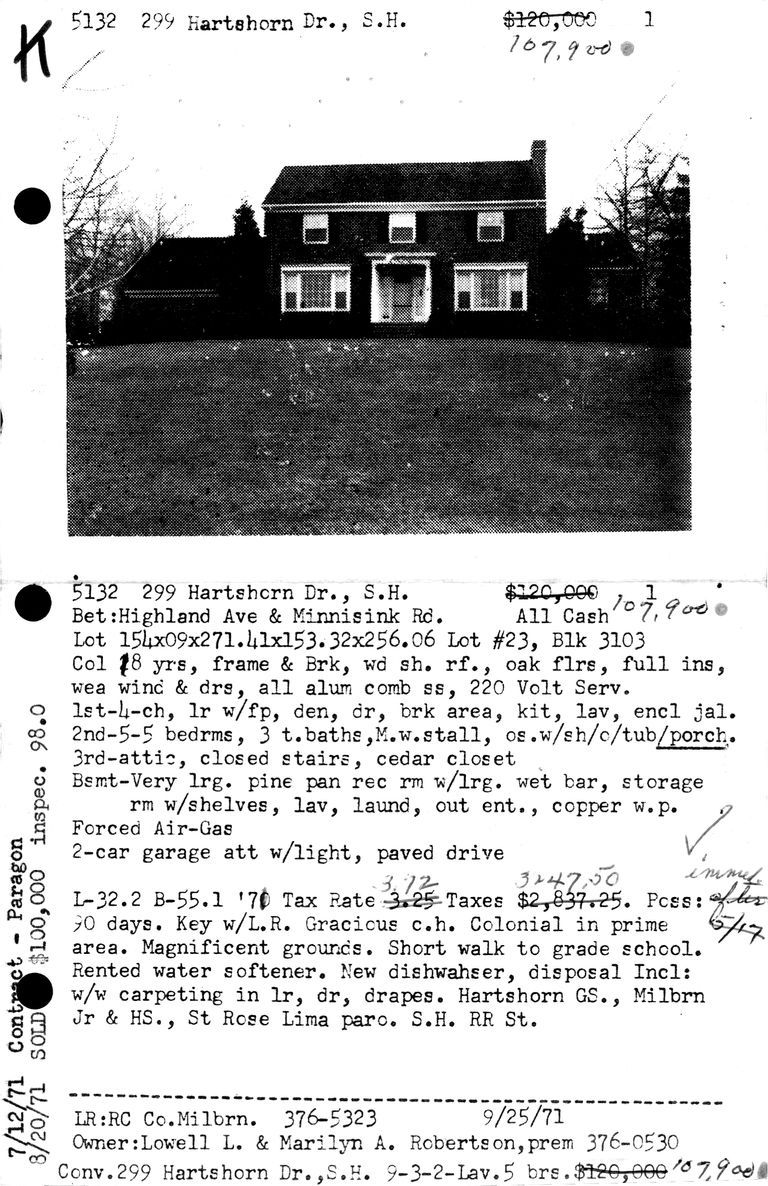 K
5132 299 Hartshorn Dr., S.H. $120,000 1
107,900
5132 299 Hartshorn Dr., S.H. $120,000 1
Bet:Highland Ave & Minnisink Rd. All Cash 107,900
Lot 154x09x271.41x153.32x256.06 Lot #23, Blk 3103
Col 18 yrs, frame & Brk, wd sh. rf., oak flrs, full ins,
wea wind & drs, all alum comb ss, 220 Volt Serv.
1st-4-ch, lr w/fp, den, dr, brk area, kit, lav, encl jal.
2nd-5-5 bedrms, 3 t.baths,M.w.stall, os.w/sh/c/tub/porch.
3rd-attic, closed stairs, cedar closet
Bsmt-Very lrg. pine pan rec rm w/lrg. wet bar, storage
rm w/shelves, lav, laund, out ent., copper w.p.
Forced Air-Gas
2-car garage att w/light, paved drive
3.92 3247.50 immed.
L-32.2 B-55.1 '71 Tax Rate 3.25 Taxes $2,837.25. Poss: after
90 days. Key w/L.R. Gracious c.h. Colonial in prime 5/17
area. Magnificent grounds. Short walk to grade school.
Rented water softener. New dishwahser, disposal Incl:
w/w carpeting in lr, dr, drapes. Hartshorn GS., Milbrn
Jr & HS., St Rose Lima paro. S.H. RR St.
LR:RC Co.Milbrn. 376-5323 9/25/71
Owner:Lowell L. & Marilyn A. Robertson,prem 376-0530
Conv.299 Hartshorn Dr.,S.H. 9-3-2-Lav.5 brs.$120,000 107,900
7/12/71 Contract - Paragon
8/20/71 SOLD $100,000 inspec. 98.0